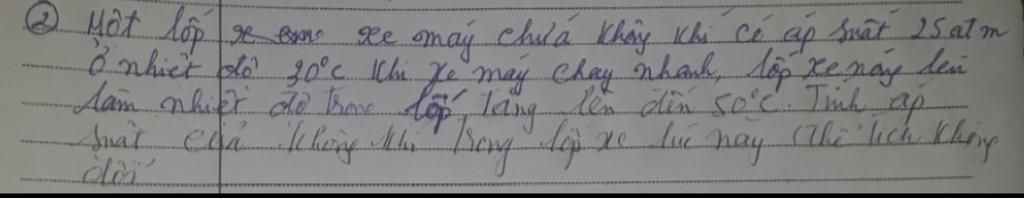 ② Một lốp xe máy chứa không khí có áp suất 25atm
Ở nhiệt độ 30°C khi xe máy chạy nhanh, lốp xe nóng lên
làm nhiệt độ trong lốp tăng lên đến 50°C. Tính áp
suất của không khí trong lốp xe lúc này (thể tích không
đổi